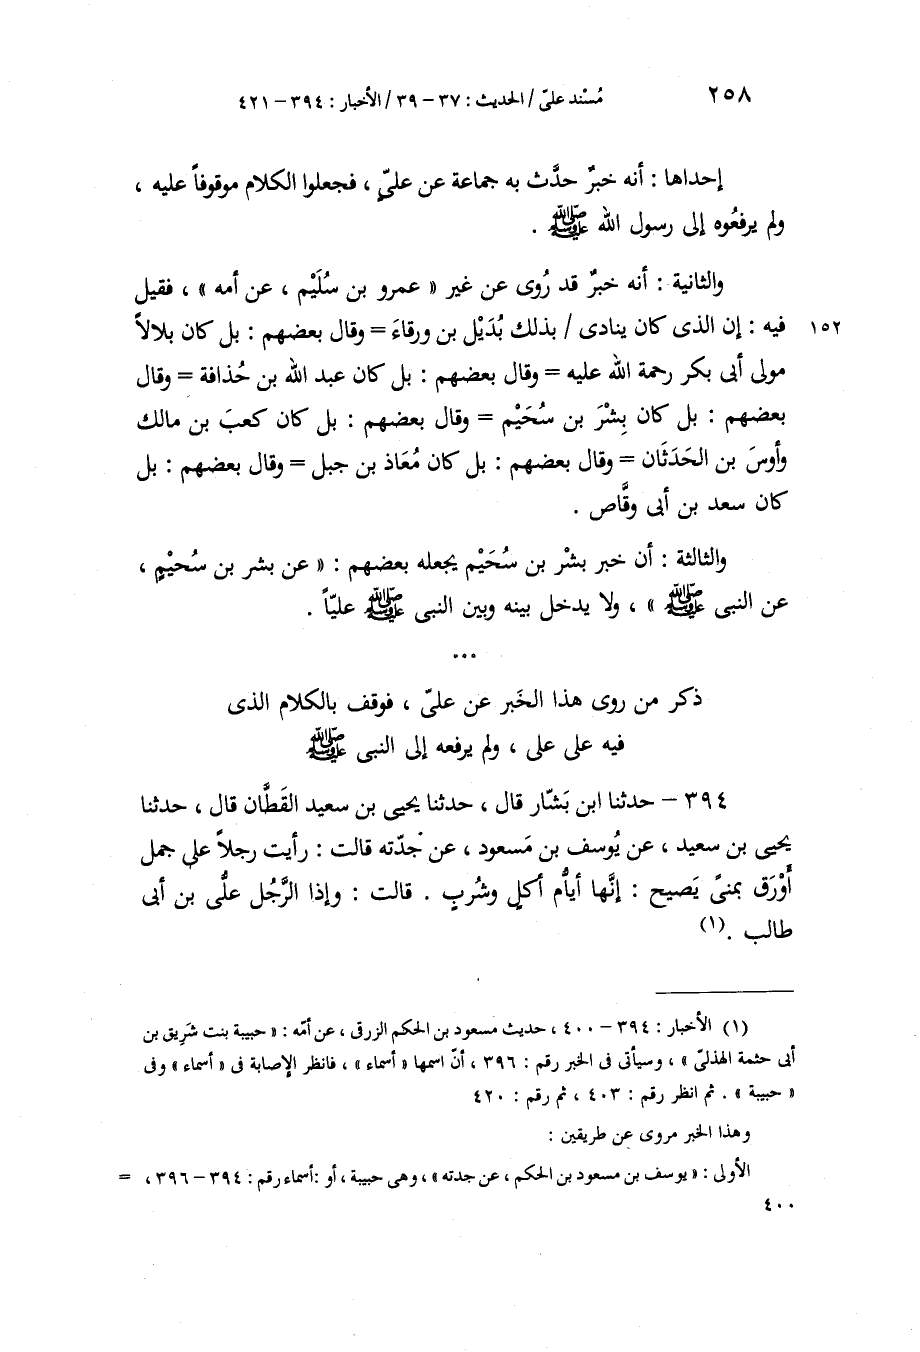 ٢٥٨ مُسْند علىّ / الحديث : ٣٧ – ٣٩ / الأخبار : ٣٩٤ – ٤٢١
إحداها : أنه خبرٌ حدَّث به جماعة عن علىٍّ ، فجعلوا الكلام موقوفاً عليه ،
ولم يرفعُوه إلى رسول الله ﷺ .
والثانية : أنه خبرٌ قد رُوى عن غير « عمرو بن سُلَيْم ، عن أمه » ، فقيل
١٥٢ فيه : إن الذى كان ينادى / بذلك بُدَيْل بن ورقاءَ = وقال بعضهم : بل كان بلالاً
مولى أبى بكر رحمة الله عليه = وقال بعضهم : بل كان عبد الله بن حُذافة = وقال
بعضهم : بل كان بِشْرَ بن سُحَيْم = وقال بعضهم : بل كان كعبَ بن مالك
وأوسَ بن الحَدَثَان = وقال بعضهم : بل كان مُعَاذ بن جبل = وقال بعضهم : بل
كان سعد بن أبى وقَّاص .
والثالثة : أن خبر بشْر بن سُحَيْم يجعله بعضهم : « عن بشر بن سُحيْمٍ ،
عن النبى ﷺ » ، ولا يدخل بينه وبين النبى ﷺ عليّاً .
...
ذكر من روى هذا الخَبر عن علىّ ، فوقف بالكلام الذى
فيه على على ، ولم يرفعه إلى النبى ﷺ
٣٩٤ – حدثنا ابن بَشّار قال ، حدثنا يحيى بن سعيد القَطَّان قال ، حدثنا
يحيى بن سعيد ، عن يُوسف بن مَسعود ، عن جدّته قالت : رأيت رجلاً على جمل
أَوْرَق بمنىً يَصيح : إنَّها أيامُ أكلٍ وشُربٍ . قالت : وإذا الرَّجُل علُّى بن أبى
طالب .(١)
(١) الأخبار : ٣٩٤ – ٤٠٠ ، حديث مسعود بن الحكم الزرقى ، عن أمّه : « حبيبة بنت شَرِيق بن
أبى حثمة الهذلىّ » ، وسيأتى فى الخبر رقم : ٣٩٦ ، أنّ اسمها « أسماء » ، فانظر الإصابة فى « أسماء » وفى
« حبيبة » . ثم انظر رقم : ٤٠٣ ، ثم رقم : ٤٢٠
وهذا الخبر مروى عن طريقين :
الأولى : « يوسف بن مسعود بن الحكم ، عن جدته » ، وهى حبيبة ، أو : أسماء رقم : ٣٩٤ – ٣٩٦ ، =
٤٠٠